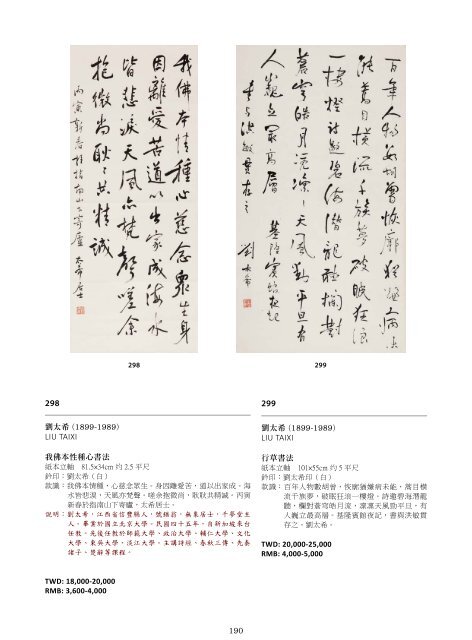 我佛本情種心慈念眾生身
因離愛苦道以出家成海水
皆悲淚天風亦梵聲嗟余
抱微尚耿耿共精誠
丙寅新春於指南山下寄廬 太希居士
百年人物數胡曾恢廓
能萬目橫流千族夢破眠狂浪
一樓燈詩邀碧海潛龍聽欄對
蒼穹皓月 凜凜天風勁平旦有
人巍立最高層 基隆賓館夜起
劉太希
298
299
298
劉太希 (1899-1989)
LIU TAIXI
我佛本性種心書法
紙本立軸 81.5×34cm 約 2.5 平尺
鈐印：劉太希（白）
款識：我佛本情種，心慈念眾生。身因離愛苦，道以出家成。海
水皆悲淚，天風亦梵聲。嗟余抱微尚，耿耿共精誠。丙寅
新春於指南山下寄廬。太希居士。
說明：劉太希，江西省信豐縣人，號錯翁、無象居士，千夢堂主
人，畢業於國立北京大學。民國四十五年，自新加坡來台
任教。先後任教於師範大學、政治大學、輔仁大學、文化
大學、東吳大學、淡江大學，主講詩經、春秋三傳、先秦
諸子、楚辭等課程。
TWD: 18,000-20,000
RMB: 3,600-4,000
299
劉太希 (1899-1989)
LIU TAIXI
行草書法
紙本立軸 101×55cm 約 5 平尺
鈐印：劉太希印（白）
款識：百年人物數胡曾，恢廓猶嫌病未能，萬目橫
流千族夢，破眠狂浪一樓燈。詩邀碧海潛龍
聽，欄對蒼穹皓月 ，凜凜天風勁平旦，有
人巍立最高層。基隆賓館夜記，書與洪敏貫
存之。劉太希。
TWD: 20,000-25,000
RMB: 4,000-5,000
190